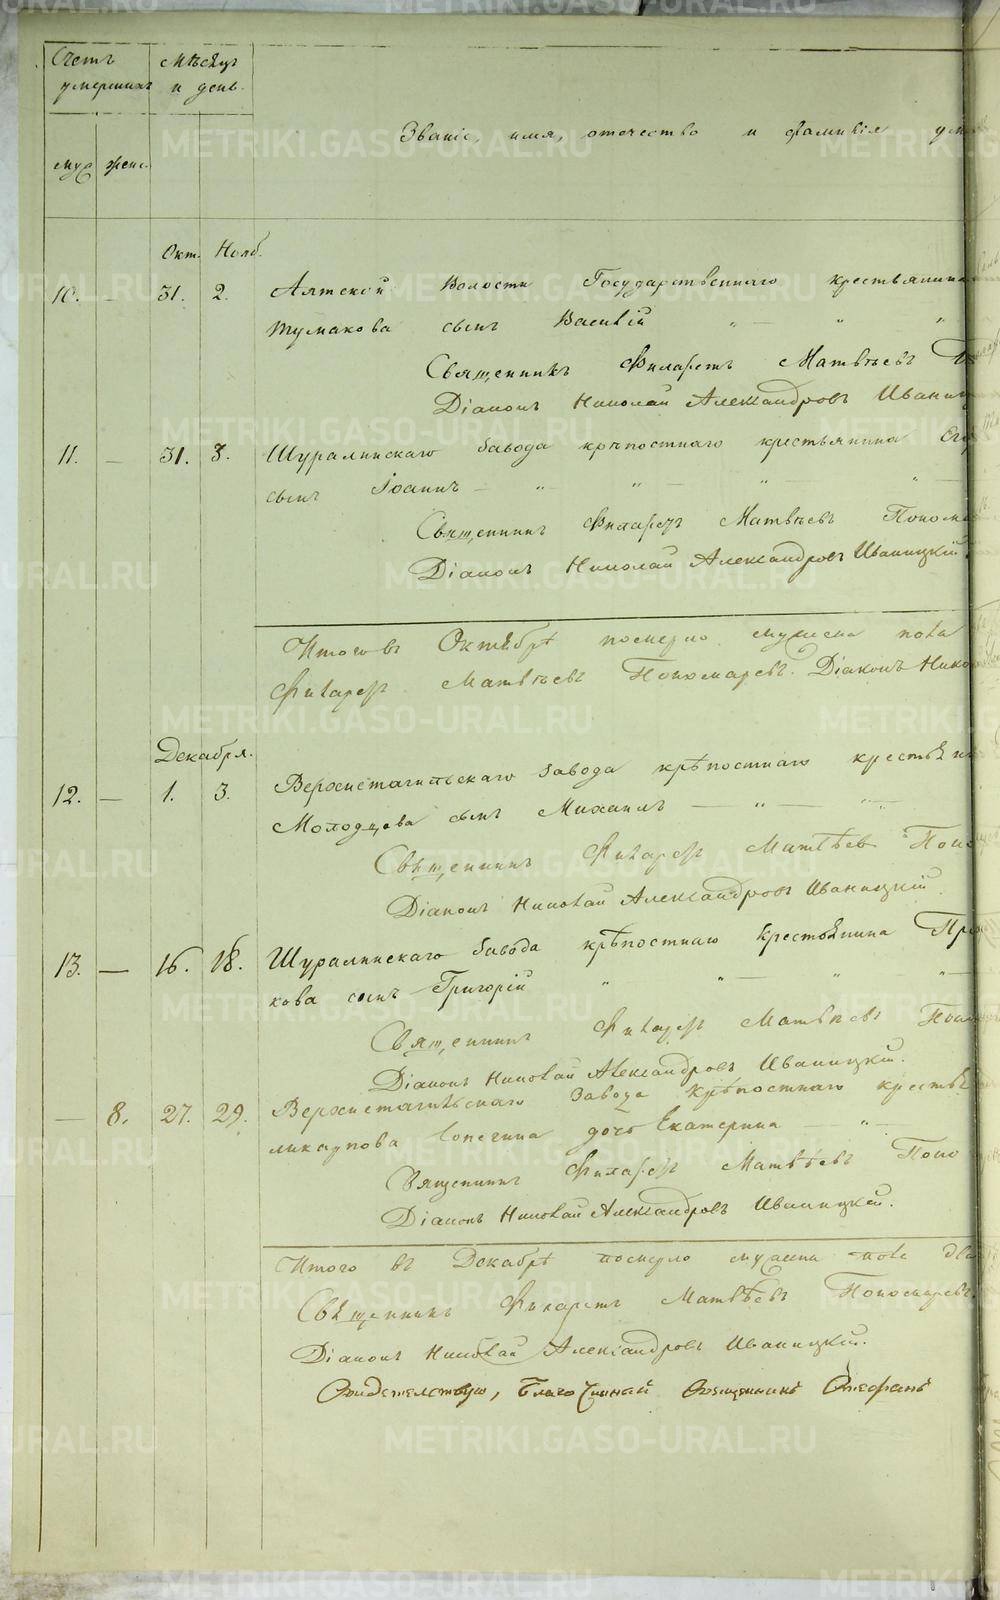 Счетъ умершихъ
Мѣсяцъ и день.
муж. женс.
Званіе, имя, отечество и фамилія
Окт. Нояб.
10. — 31. 2. Аятской Волости Государственнаго крестьянина
Тумакова сынъ Василій
Священникъ Филаретъ Матвѣевъ
Діаконъ Николай Александровъ Иваниц
11. — 31. 3. Шуралинскаго завода крѣпостнаго крестьянина Его
сынъ Іоаннъ
Священникъ Филаретъ Матвѣевъ Поном
Діаконъ Николай Александровъ Иваницкій
Итого въ Октябрѣ померло мужеска пола
Филаретъ Матвѣевъ Пономаревъ. Діаконъ Нико
Декабря.
12. — 1. 3. Верхнетагильскаго завода крѣпостнаго крестьяни
Молодцова сынъ Михаилъ
Священникъ Филаретъ Матвѣевъ Поно
Діаконъ Николай Александровъ Иваницкій.
13. — 16. 18. Шуралинскаго завода крѣпостнаго крестьянина
кова сынъ Григорій
Священникъ Филаретъ Матвѣевъ Поно
Діаконъ Николай Александровъ Иваницкій.
— 8. 27. 29. Верхнетагильскаго завода крѣпостнаго крестья
дочь Екатерина
Священникъ Филаретъ Матвѣевъ Поно
Діаконъ Николай Александровъ Иваницкій.
Итого въ Декабрѣ померло мужеска пола два
Священникъ Филаретъ Матвѣевъ Пономаревъ
Діаконъ Николай Александровъ Иваницкій.
Свидетельствую, Благочинный Священникъ Стефанъ
METRIKI.GASO-URAL.RU